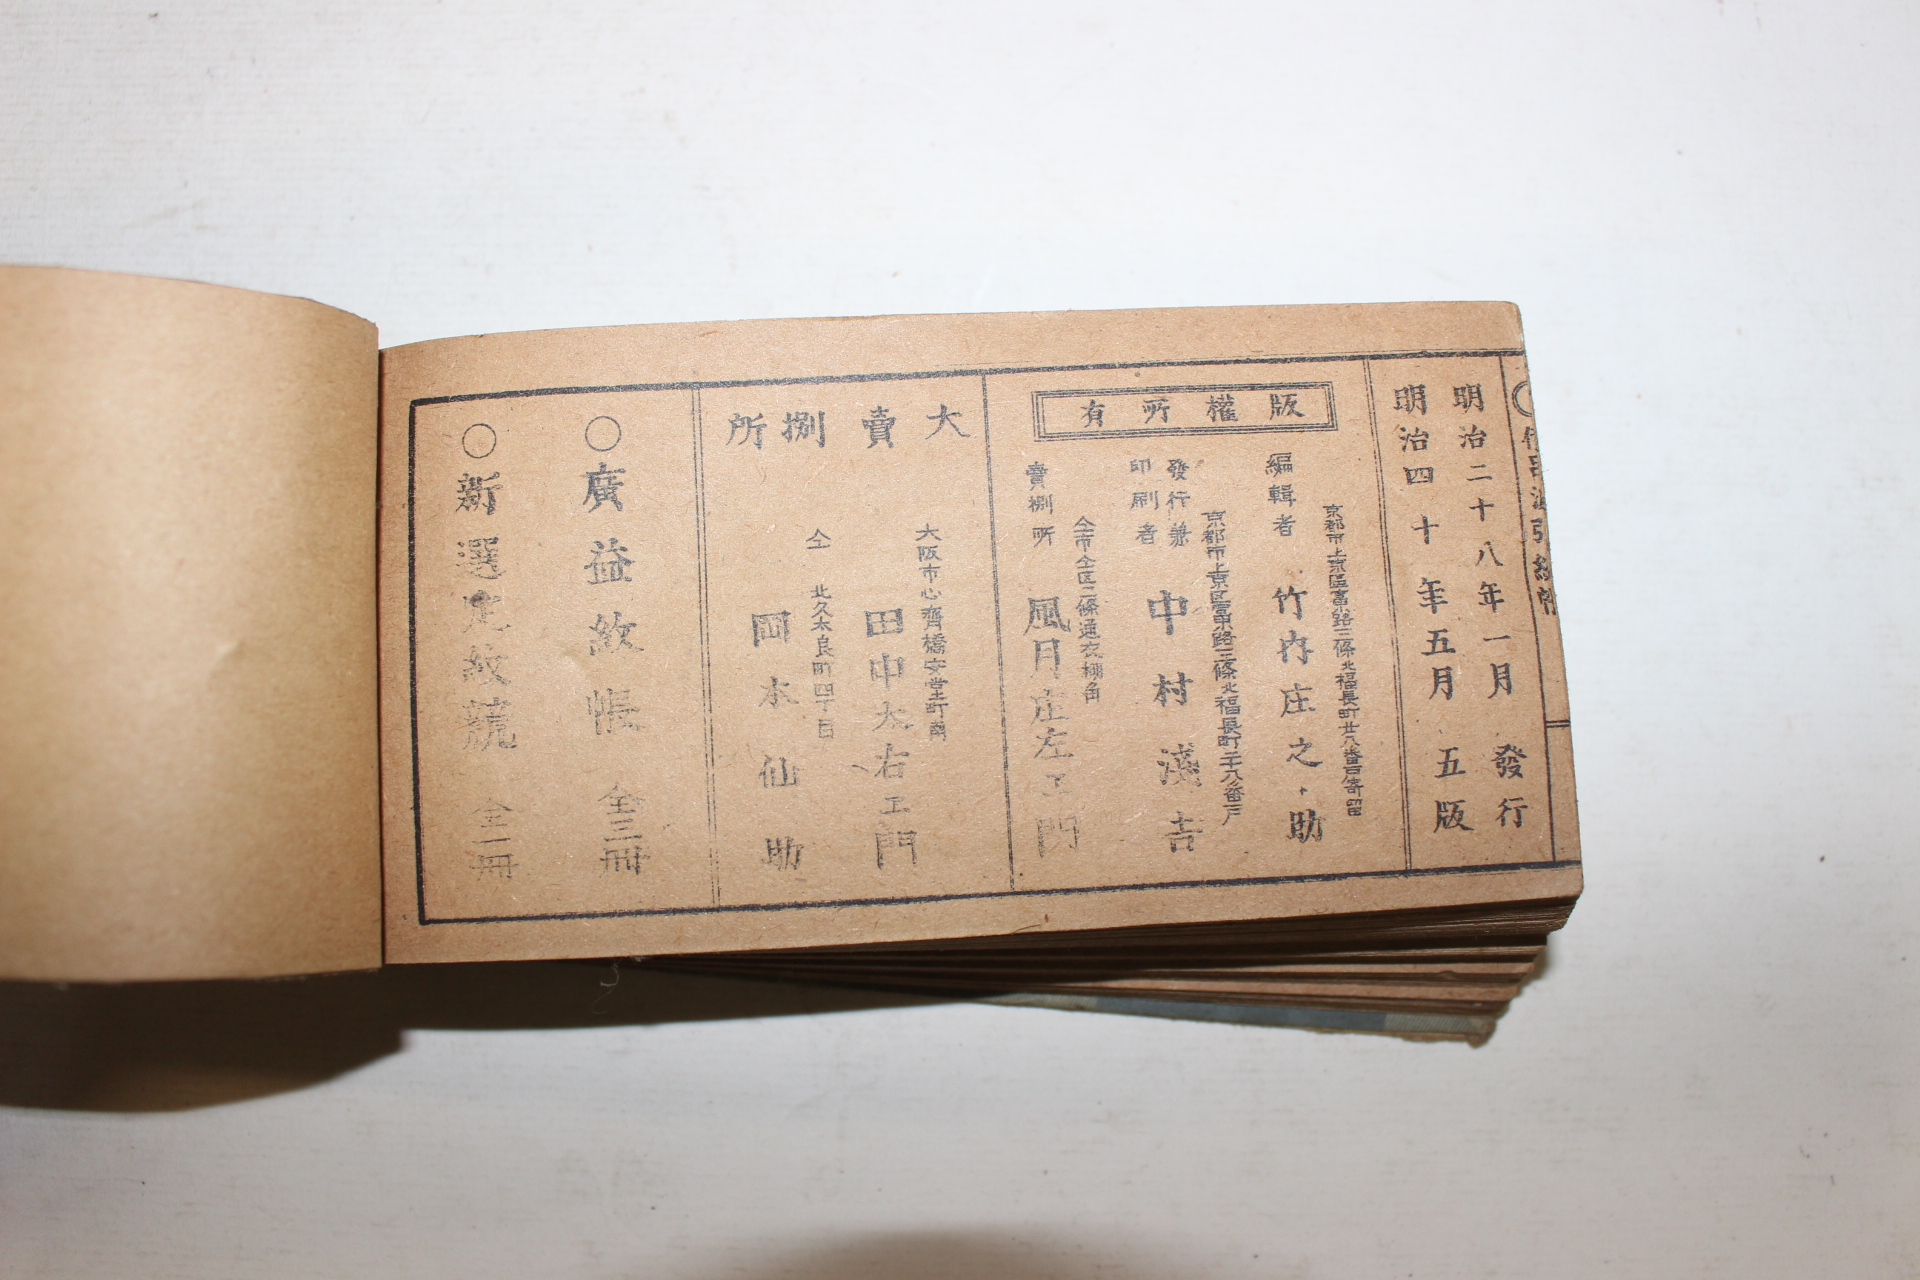 明治二十八年一月 發行
明治四十年五月 五版
版權所有
京都市上京區富路三條北福長町廿八番戸寄留
編輯者 竹内庄之助
京都市上京区富東路三條北福長町二十八番戸
發行兼
印刷者
中村淺吉
仝市仝区二條通衣棚角
賣捌所 風月庄左エ門
大賣捌所
大阪市心齊橋安堂土町南
田中太右エ門
仝 北久太良町四丁目
岡本仙助
○廣益紋帳 全三冊
○新選定紋鏡 全一冊